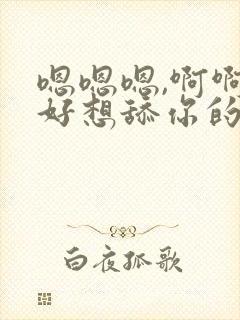 嗯嗯嗯,啊啊
好想舔你的
白夜孤歌